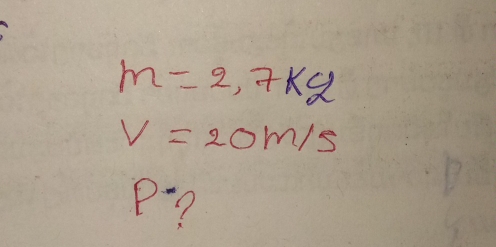 m = 2,7Kg
V = 20m/s
P-?